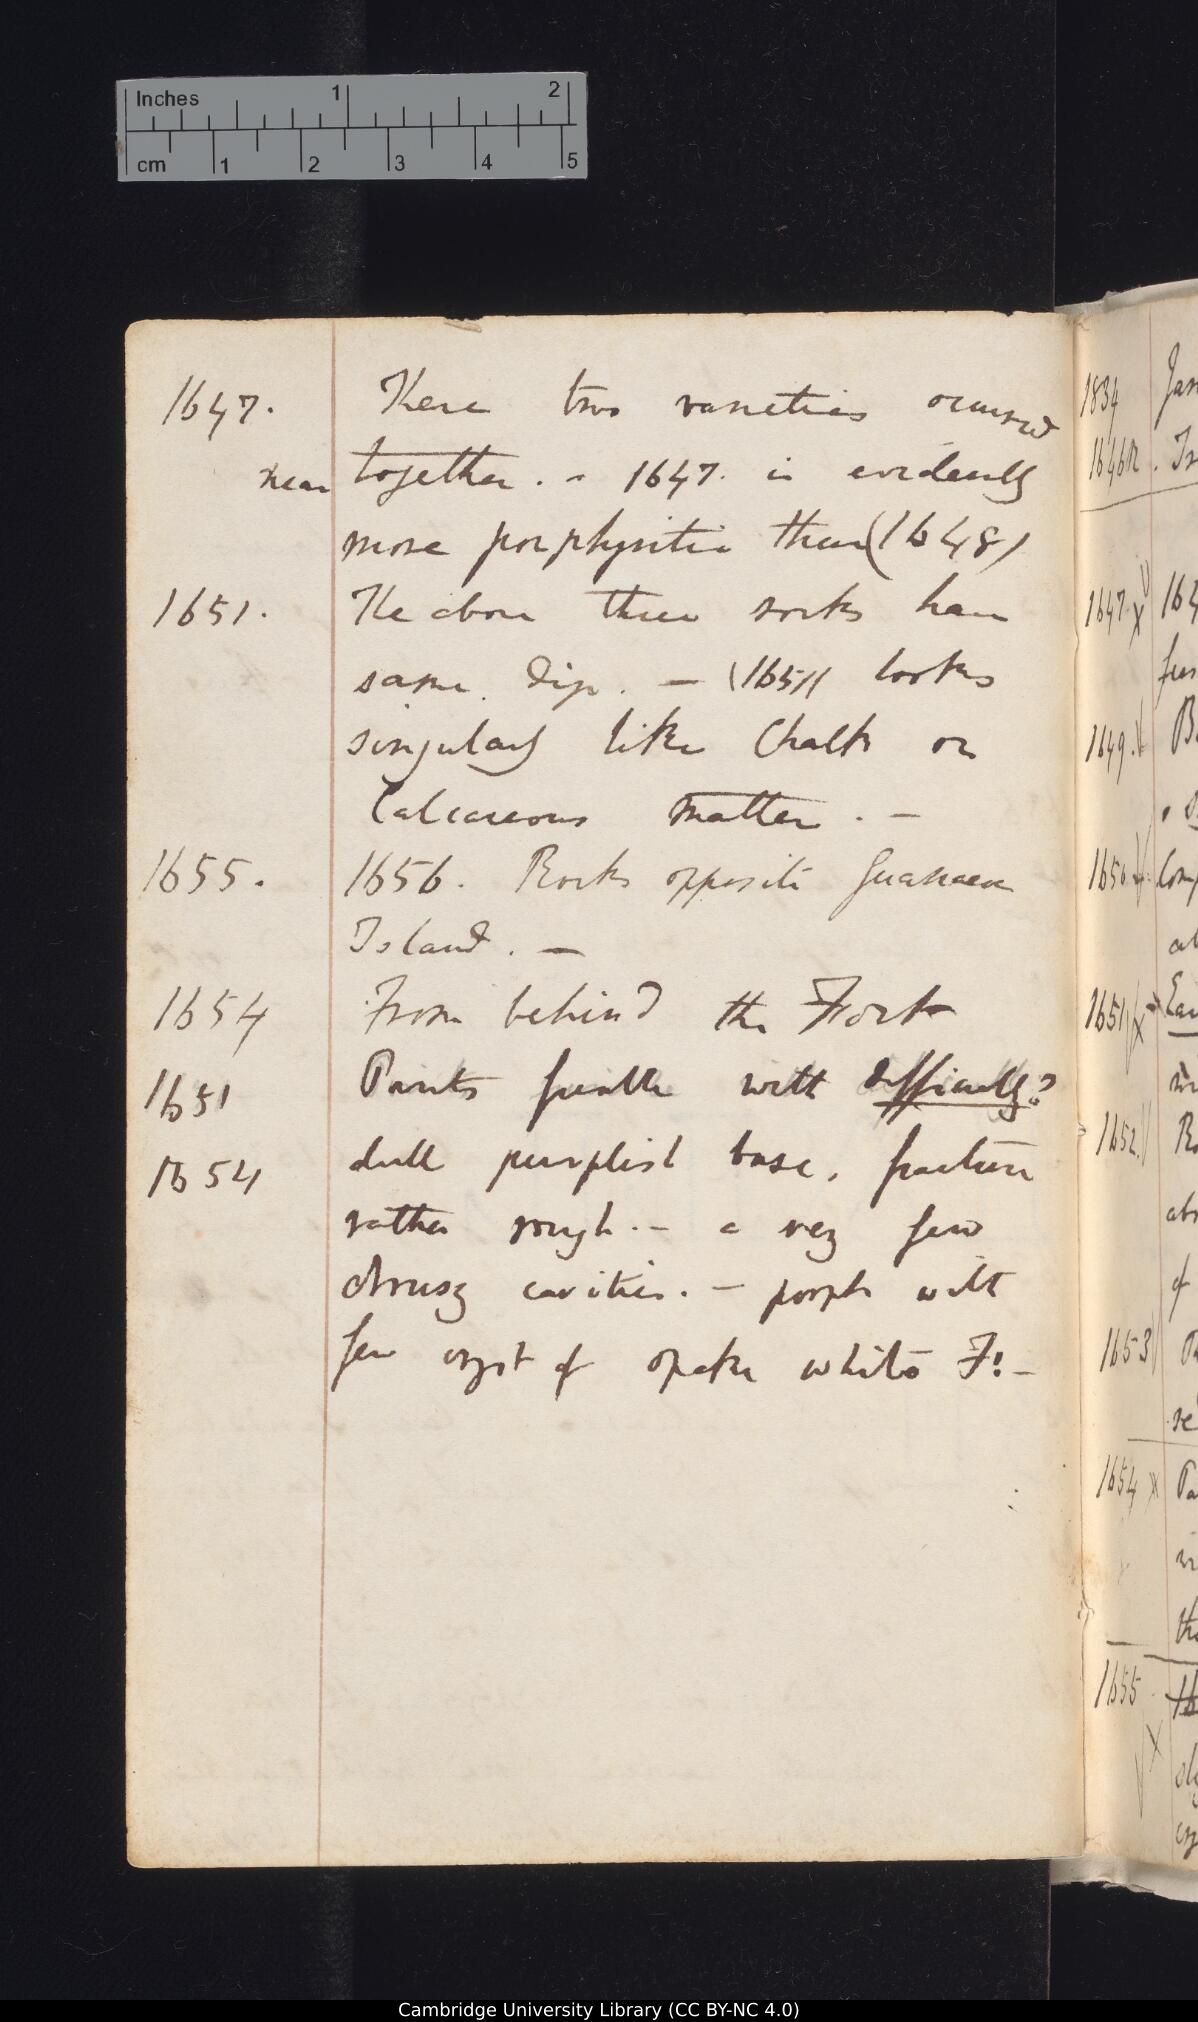 Inches 1 2
cm 1 2 3 4 5
1647. These two varieties occurred
near together. - 1647. is evidently
more porphyritic than (1648)
1651. The above three rocks have
same dip. — (1651) looks
singularly like Chalk or
Calcareous matter. —
1655. 1656. Rocks opposite Guanaco
Island. —
1654 From behind the Fort
1651 Points fusible with difficulty?
1654 dull purplish base, fracture
rather rough. — a very few
drusy cavities. — porph with
few cryst of opake white F: —
1834 Jan
1646
1647. x 164
1649.
1650
1651 x
1652.
abs
of
1653
1654 x
1655
x
Cambridge University Library (CC BY-NC 4.0)